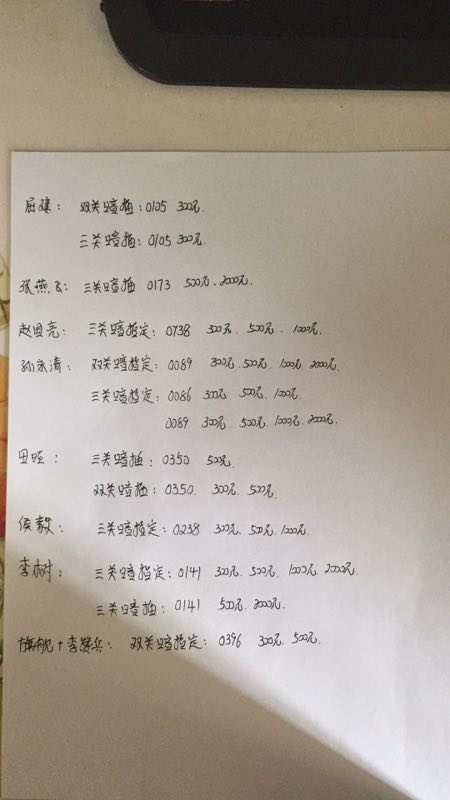 屈建： 双关暗插：0105 300元.
三关暗插：0105 300元.
张燕飞： 三关暗插 0173 500元、2000元.
赵国亮： 三关暗指定：0738 300元、500元、1000元.
孙永清： 双关暗指定：0089 300元、500元、1000元、2000元.
三关暗指定：0086 300元 500元、1000元.
0089 300元、500元、1000元、2000元.
田旺： 三关暗插：0350 500元.
双关暗插：0350. 300元、500元.
侯毅： 三关暗指定：0238 300元、500元、1000元.
李树： 三关暗指定：0141 300元、500元、1000元、2000元.
三关暗插：0141 500元、2000元.
旗舰+李继兵： 双关暗指定：0396 300元、500元.